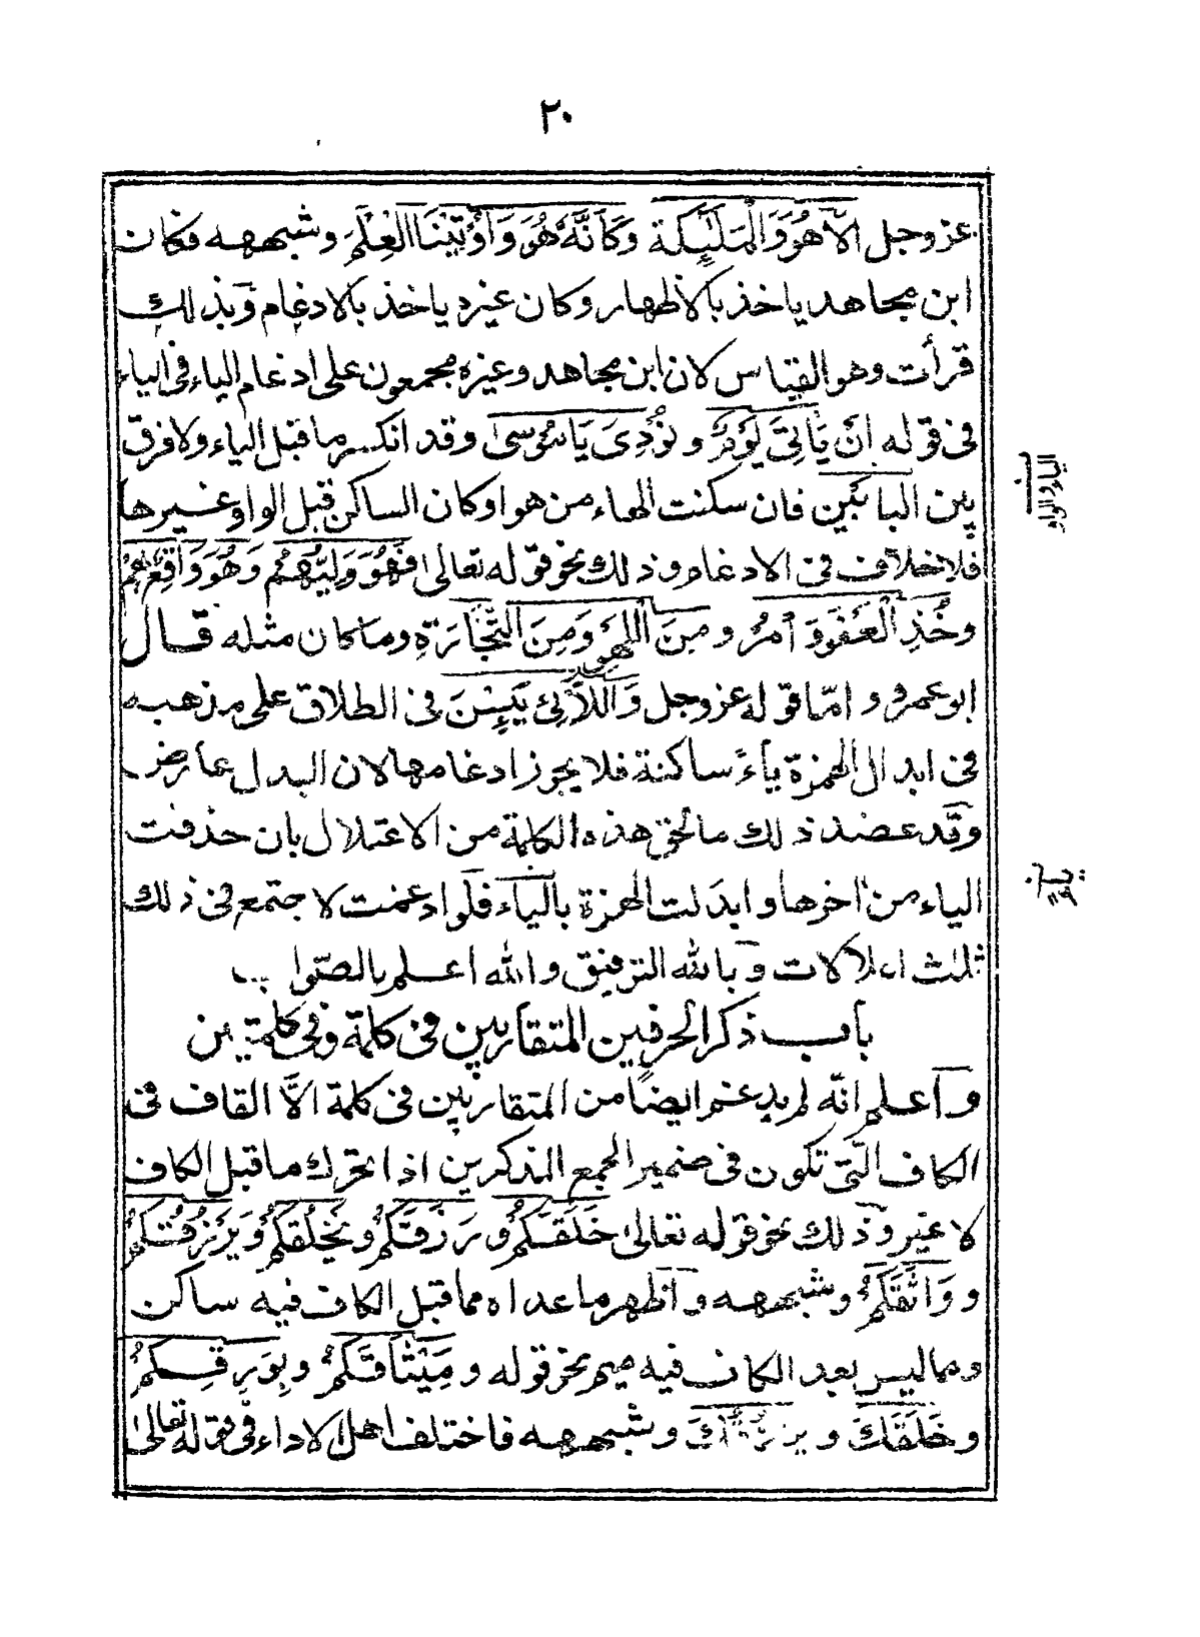 ٢٠
عزوجل الَّا هُوَ وَالْمَلٰٓئِكَة وَكَاَنَّهُ هُوَ وَ اُوْتِيْنَا الْعِلْمَ وشبهه فكان
ابن مجاهد ياخذ بالاظهار وكان غيره ياخذ بالادغام وبذلك
قرأت وهو القياس لان ابن مجاهد وغيره مجمعون على ادغام الياء فى الياء
فى قوله اَنْ يَاتِىَ يَوْمٌ و نُوْدِىَ يَا مُوْسىٰ وقد انكسر ما قبل الياء ولا فرق
بين البابَيْنِ فان سكنت الهاء من هو او كان الساكن قبل الواو غيرها
فلا خلاف فى الادغام وذلك نحو قوله تعالى فَهُوَ وَلِيُّهُمُ وَهُوَ وَاقِعٌ بِهِمْ
وخُذِ الْعَفْوَ وَ اْمُرْ و مِنَ اللَّهْوِ وَمِنَ التِّجَارَةِ وما كان مثله قال
ابو عمرو و امّا قوله عزوجل وَاللَّائِ يَئِسْنَ فى الطلاق على مذهبه
فى ابدال الهمزة ياءً ساكنة فلا يجوز ادغامها لان البدل عارض
وقد عضد ذلك ما لحق هذه الكلمة من الاعتلال بان حذفت
الياء من اٰخرها و ابدلت الهمزة بالياء فلو ادغمت لاجتمع فى ذلك
ثلٰث اعلالات و بالله التوفيق والله اعلم بالصّواب
باب ذكر الحرفين المتقاربين فى كلمة وفى كلمتين
واعلم انّه لم يدغم ايضًا من المتقاربين فى كلمة الَّا القاف فى
الكاف الّتى تكون فى ضمير الجمع المذكرين اذا تحرّك ما قبل الكاف
لا غير وذلك نحو قوله تعالىٰ خَلَقَكُمْ و رَزَقَكُمْ و يَخْلُقُكُمْ وَ يَرْزُقُكُمْ
و وَاثَقَكُمْ وشبهه و اظهر ما عداه مما قبل الكاف فيه ساكن
ومما ليس بعد الكاف فيه ميم نحو قوله و مِيْثَاقَكُمْ و بِوَرِقِكُمْ
و خَلَقَكَ و نَرْزُقُكَ و شبهه فاختلف اهل الاداء فى قوله تعالىٰ
الياء والواو